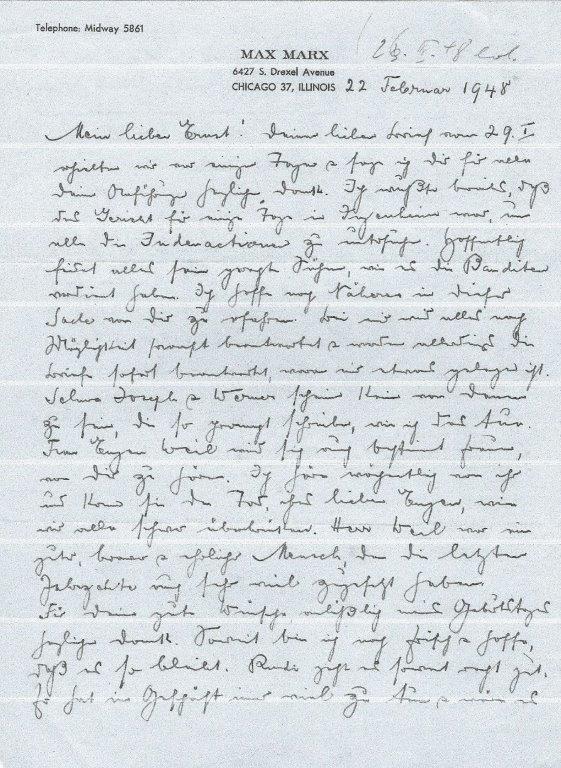 Telephone: Midway 5861
MAX MARX
6427 S. Drexel Avenue
CHICAGO 37, ILLINOIS 22 Februar 1948
Mein lieber Ernst! Deinen lieben Brief vom 29. I
erhielten wir vor einigen Tagen & sage ich dir für alle
deine Ausführungen herzlichen Dank. Ich wußte bereits, daß
das Gericht für einige Tage in Ingenheim war, um
alle die Judenactionen zu untersuchen. Hoffentlich
findet alles seine gerechte Sühne, wie es die Banditen
verdient haben. Ich hoffe noch Näheres in dieser
Sache von dir zu erfahren. Bei mir wird alles nach
Möglichkeit prompt beantwortet & werden allerdings die
Briefe sofort beantwortet, woran mir etwas gelegen ist.
Selma Joseph & Werner scheinen keine von denen
zu sein, die so prompt schreiben, wie ich das tue.
Frau Eugen Weil wird sich auch bestimmt freuen,
von dir zu hören. Ich höre wöchentlich von ihr
und kann sie den Tod, ihres lieben Eugen, wie
wir alle schwer überwinden. Herr Weil war ein
guter, braver & ehrlicher Mensch, dem die letzten
Jahrzehnte auch sehr viel zugesetzt haben
Für deine guten Wünsche anläßlich meines Geburtstages
herzlichen Dank. Soweit bin ich noch frisch & hoffe,
daß es so bleibt. Rudi geht es soweit recht gut.
Er hat im Geschäft immer viel zu tun & wenn es